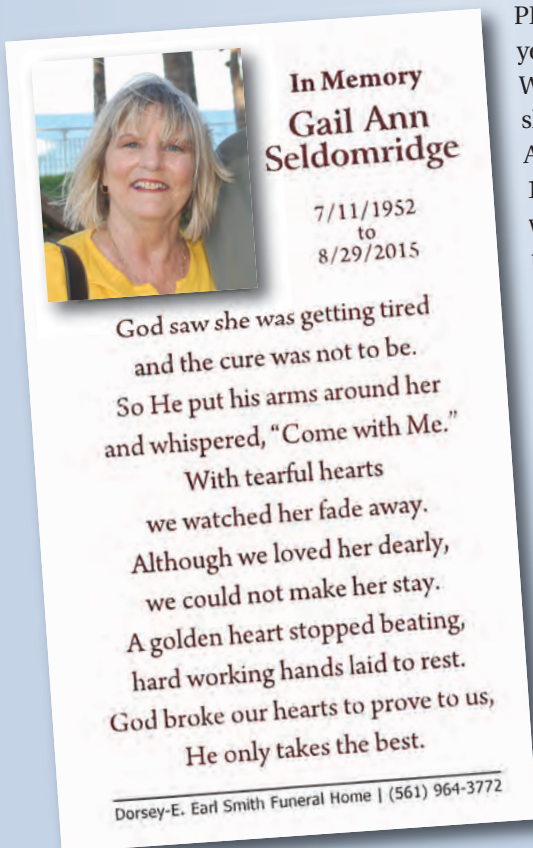 In Memory
Gail Ann
Seldomridge
7/11/1952
to
8/29/2015
God saw she was getting tired
and the cure was not to be.
So He put his arms around her
and whispered, “Come with Me.”
With tearful hearts
we watched her fade away.
Although we loved her dearly,
we could not make her stay.
A golden heart stopped beating,
hard working hands laid to rest.
God broke our hearts to prove to us,
He only takes the best.
Dorsey-E. Earl Smith Funeral Home | (561) 964-3772